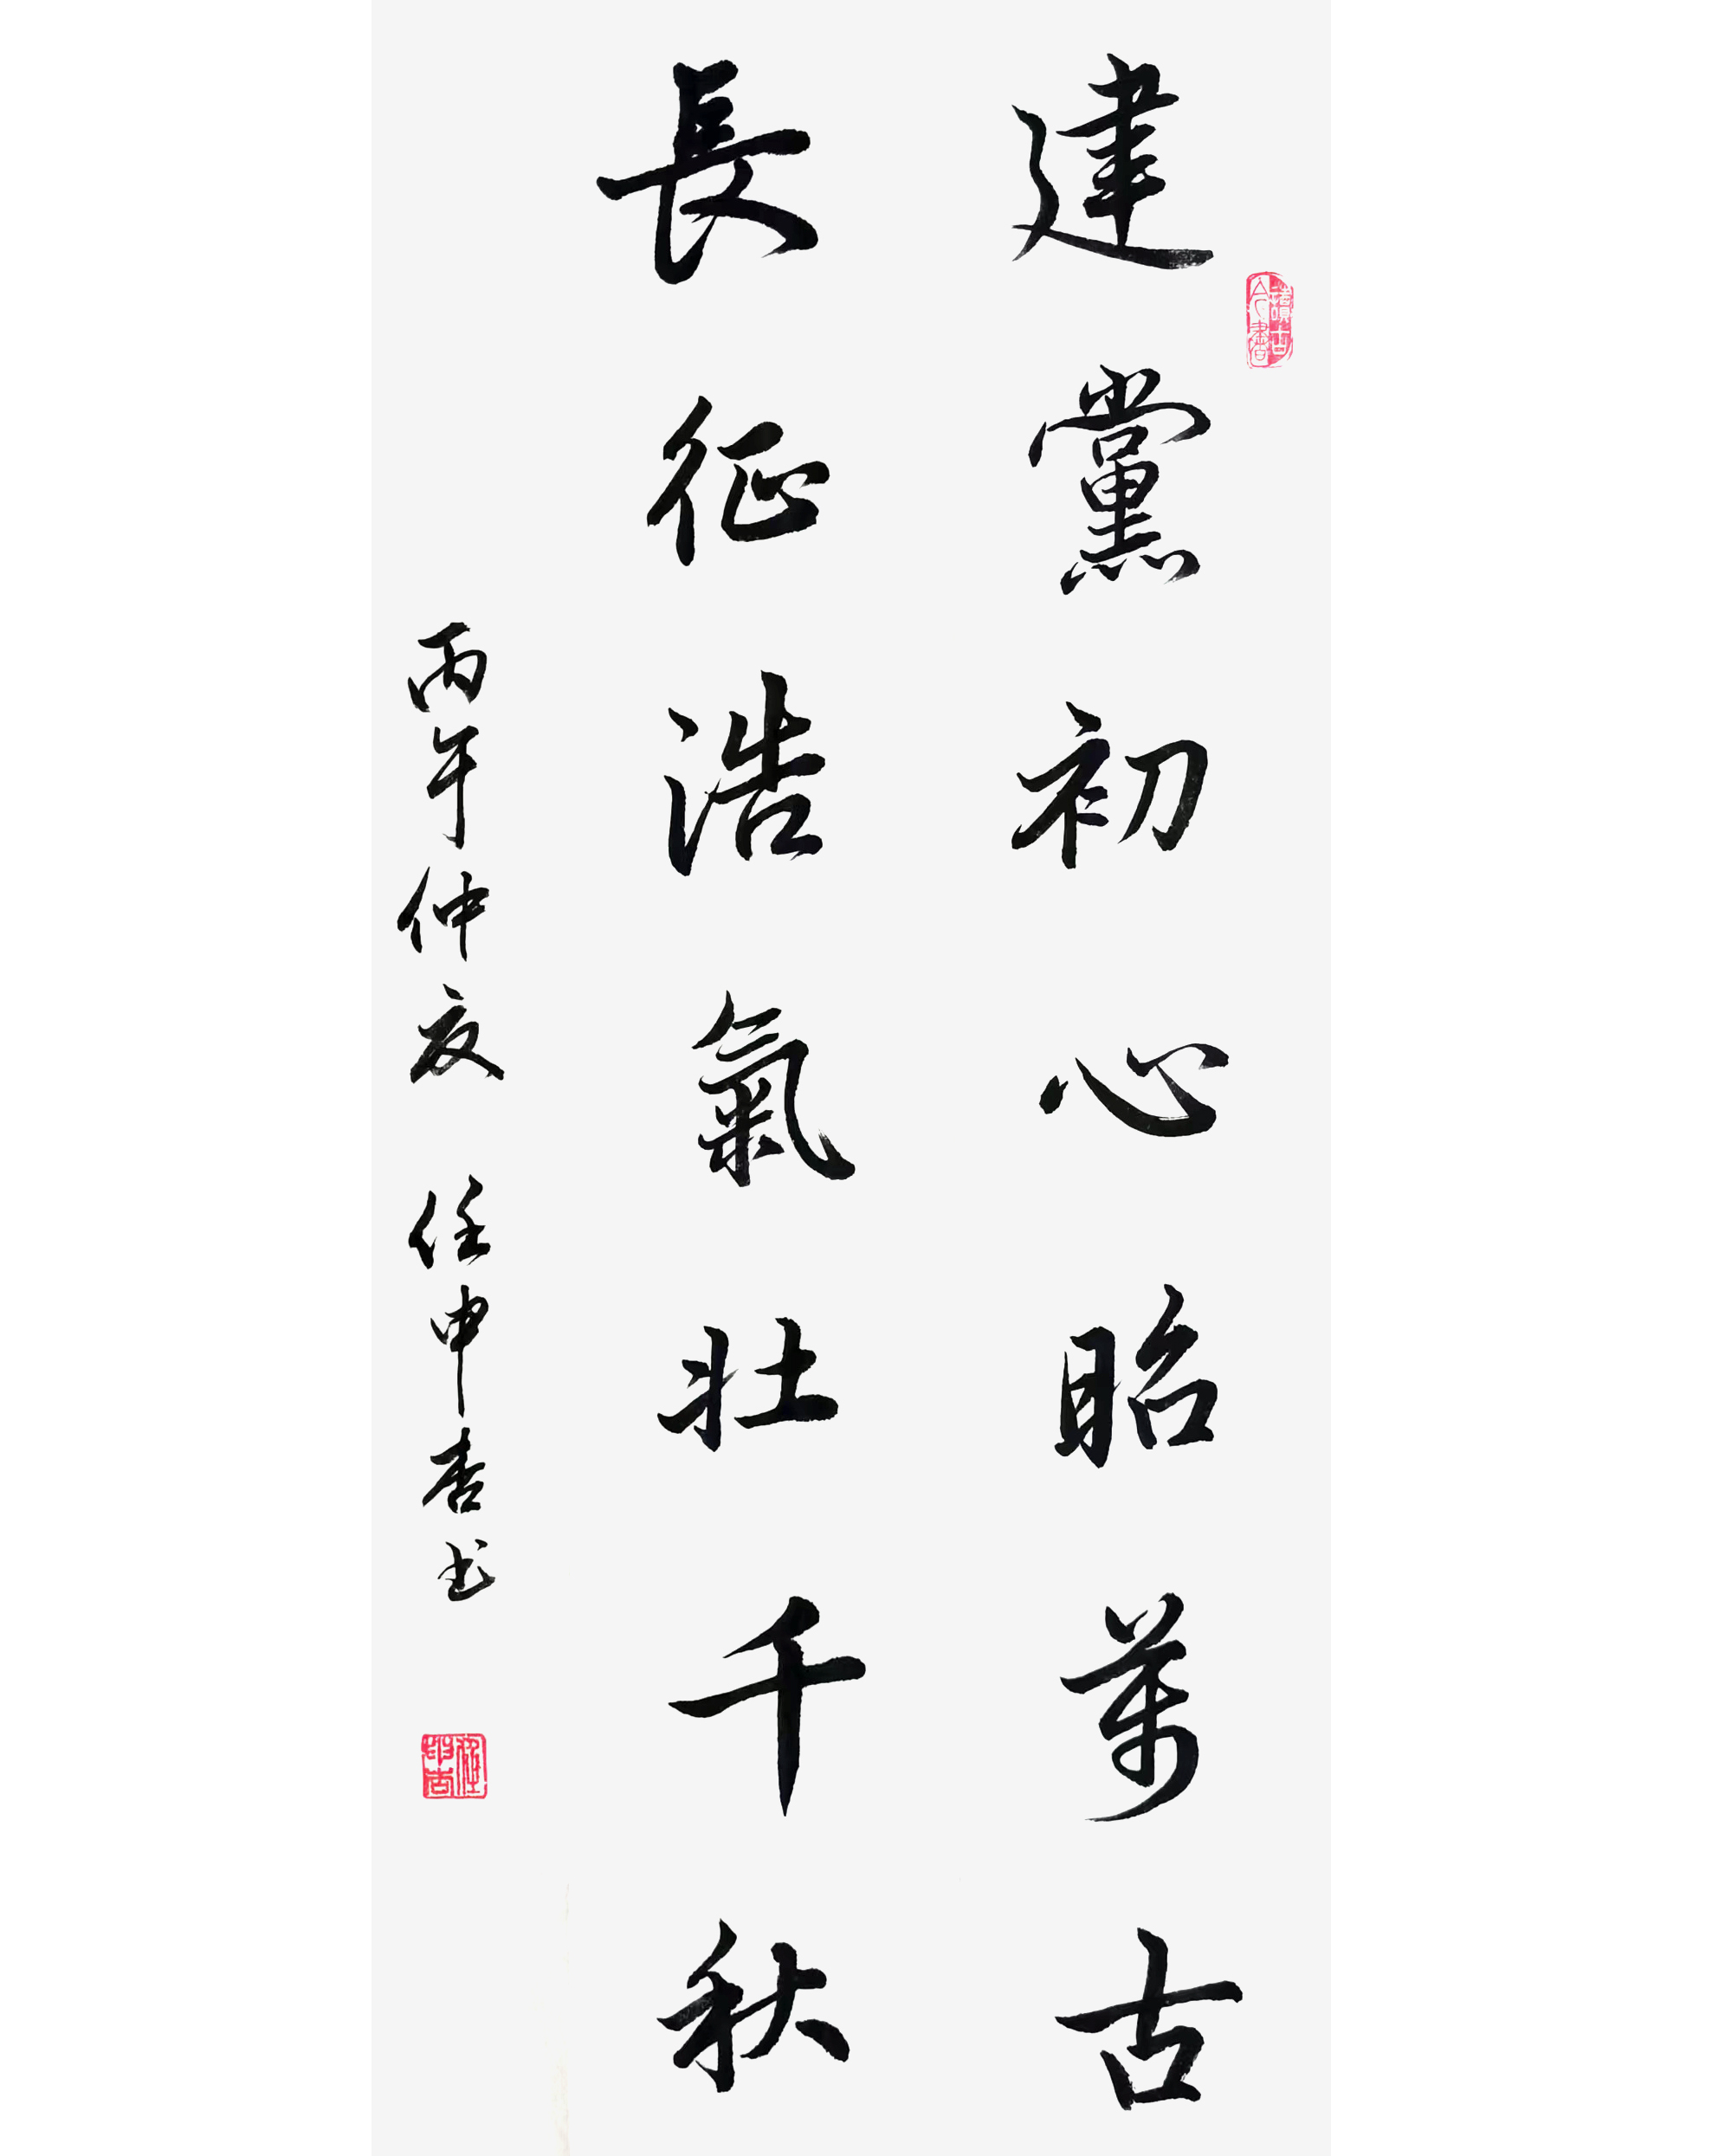 建黨初心昭萬古
長征浩氣壯千秋
丙午仲夏 任申杏书